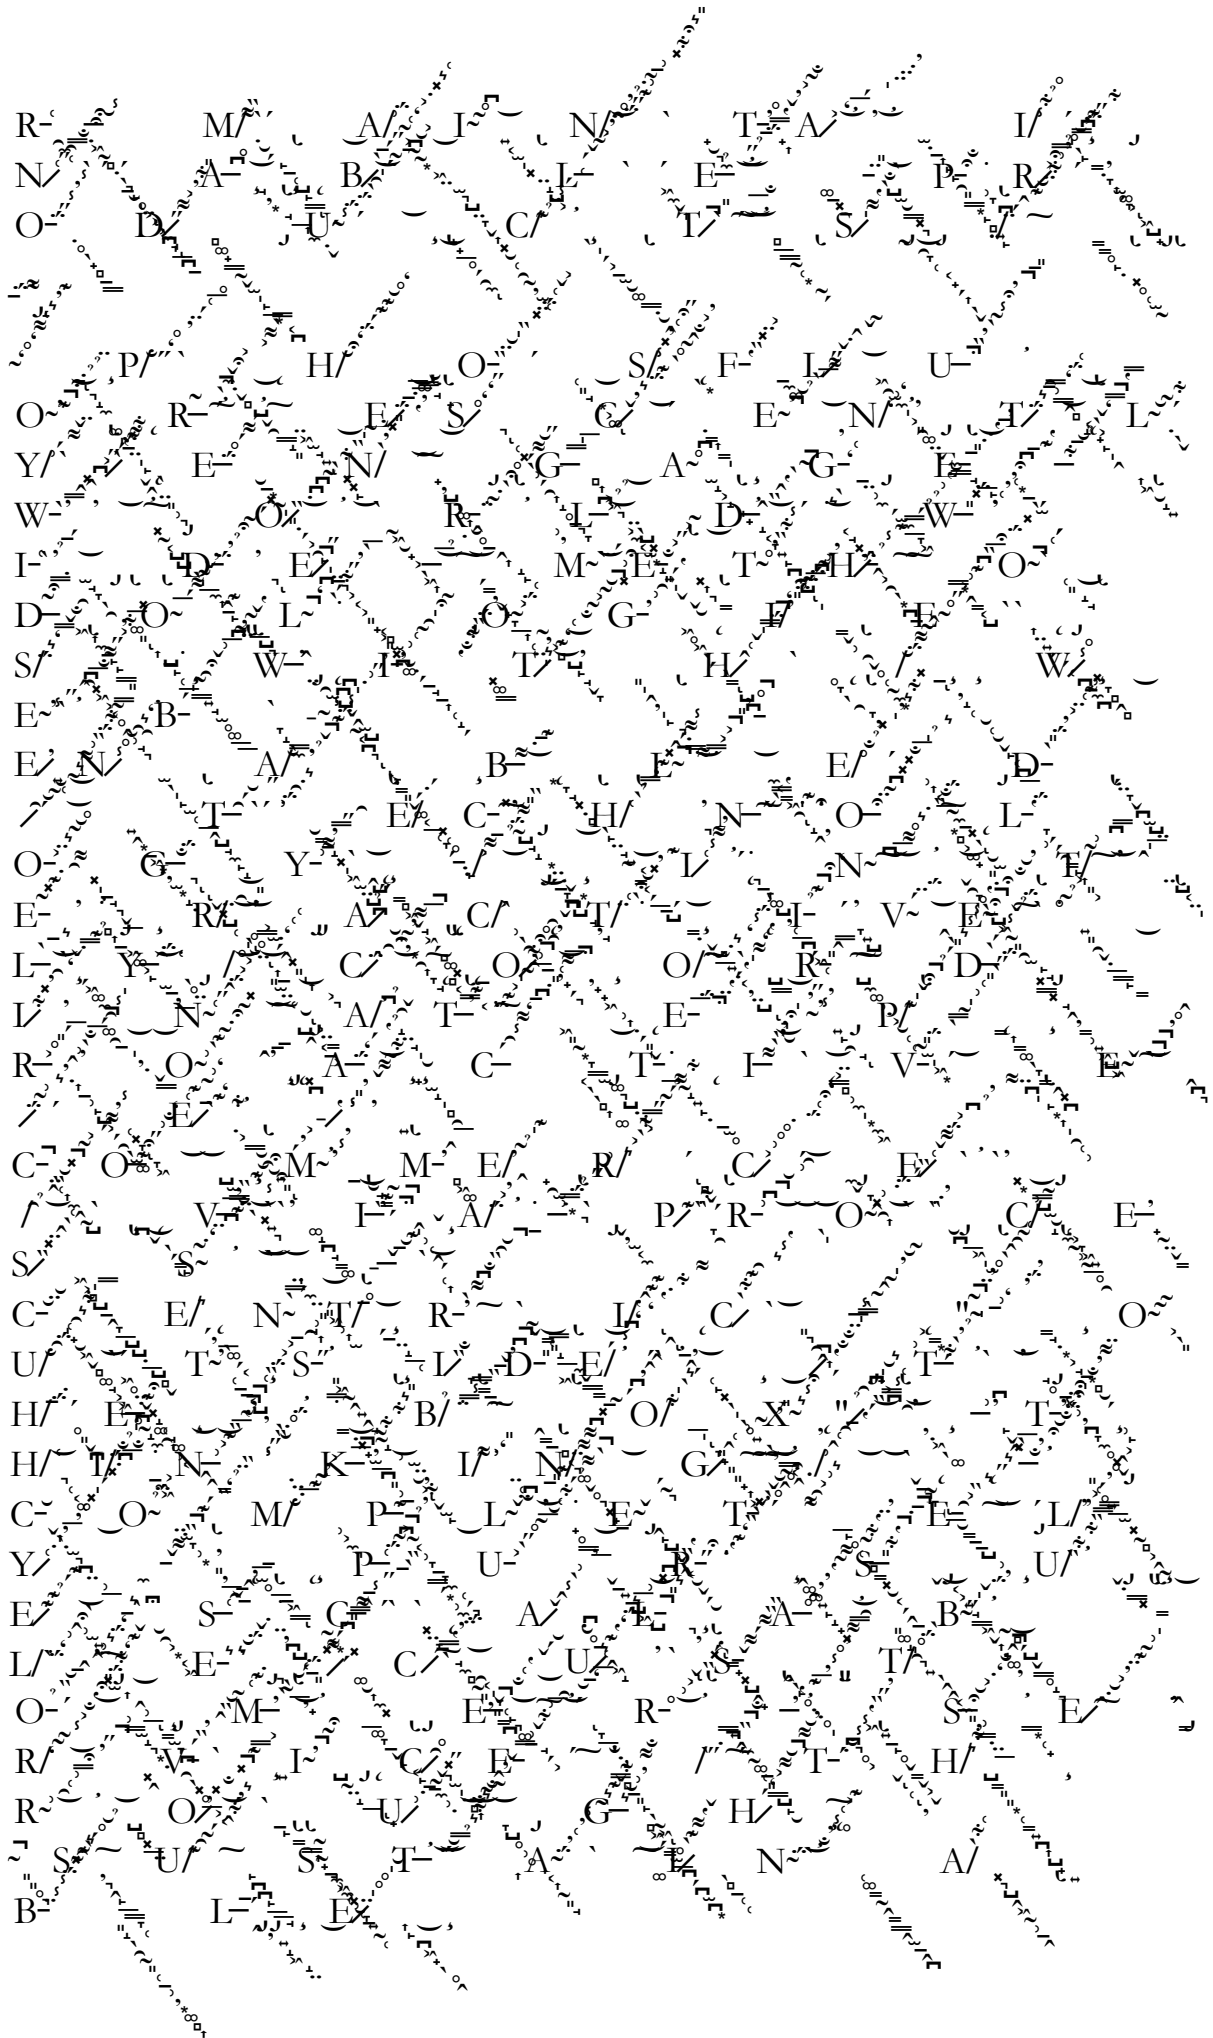 R MAINTAI
NABLE PR
ODUCTS
PHOSFLU
ORESCENTL
Y ENGAGE
WORLDW
IDE METHO
DOLOGIE
S WITH W
EB
ENABLED
TECHNOL
OGY INT
ERACTIVE
LY COORD
INATE P
ROACTIVE
E
COMMERCE
VIA PROCE
SS
CENTRIC O
UTSIDE T
HE BOX T
HINKING
COMPLETEL
Y PURSU
E SCALAB
LE CUST
OMER SE
RVICE TH
ROUGH
SUSTAINA
BLE